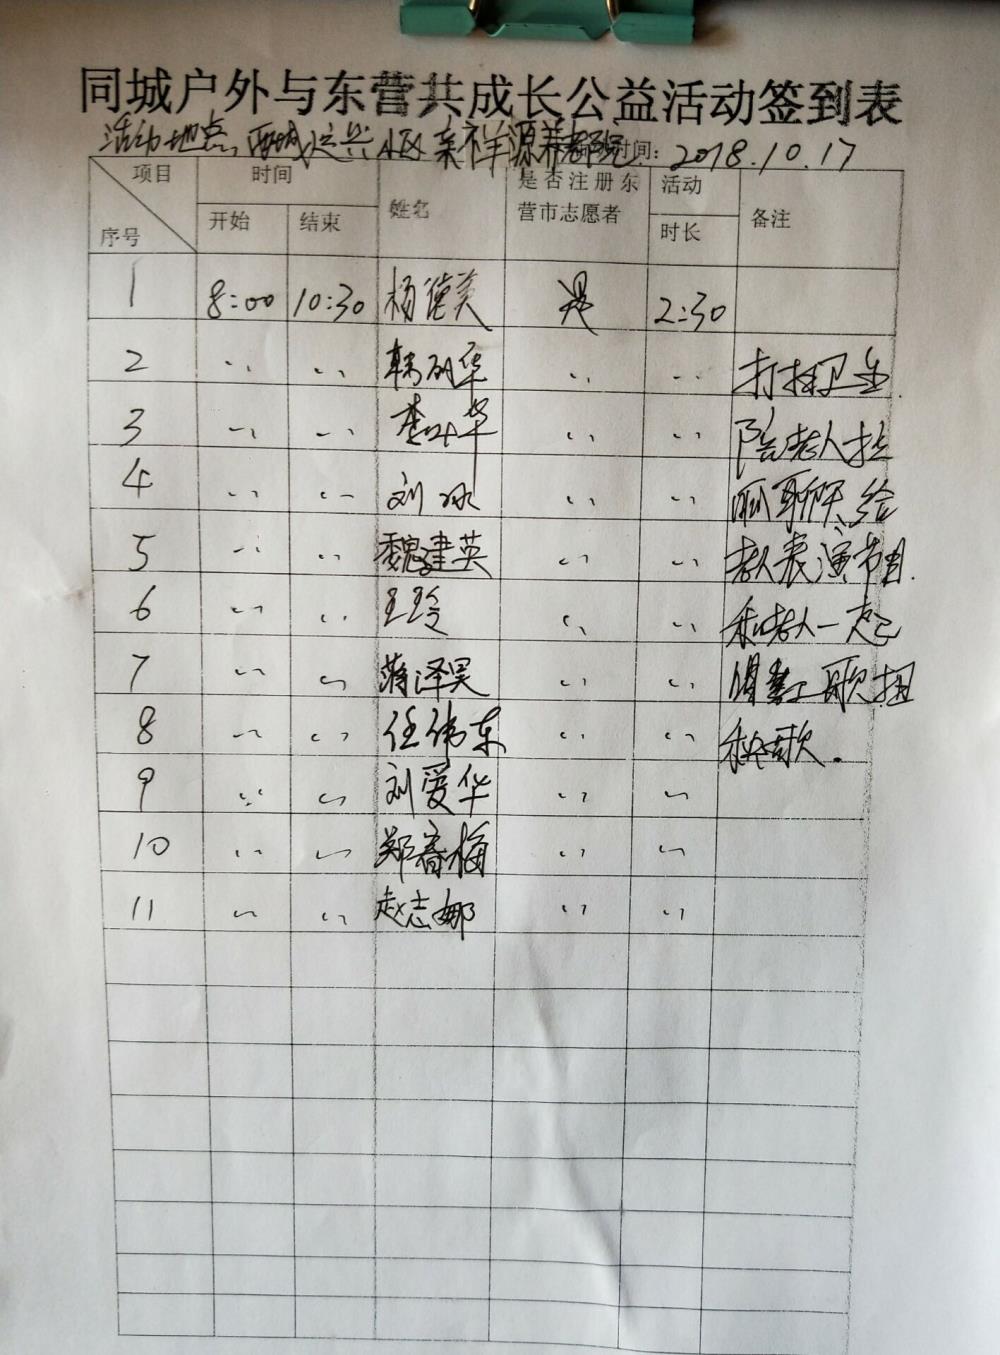 同城户外与东营共成长公益活动签到表
活动地点:西城定兴小区 祥源养老院 时间: 2018.10.17
项目 时间 姓名 是否注册东营市志愿者 活动时长 备注
序号 开始 结束
1 8:00 10:30 杨德美 是 2:30
2 〃 〃 韩丽华 〃 〃 打扫卫生.
3 〃 〃 李叶华 〃 〃 陪老人拉
4 〃 〃 刘冰 〃 〃 呱聊天、给
5 〃 〃 魏建英 〃 〃 老人表演节目.
6 〃 〃 王玲 〃 〃 和老人一起
7 〃 〃 蒋泽昊 〃 〃 唱红歌扭
8 〃 〃 任伟东 〃 〃 秧歌.
9 〃 〃 刘爱华 〃 〃
10 〃 〃 郑春梅 〃 〃
11 〃 〃 赵志娜 〃 〃